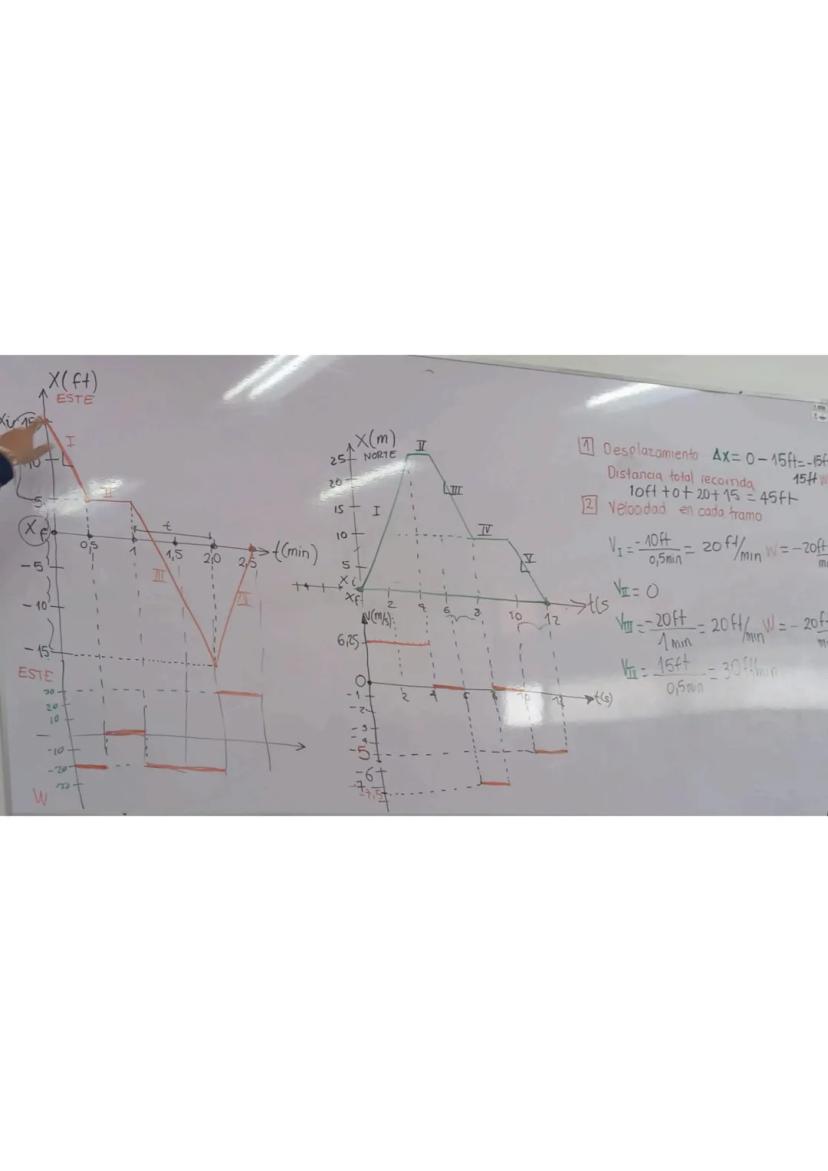 X(ft)
ESTE
15
I
10
5
II
t
0,5
1
1,5
2,0
2,5
t(min)
-5
III
IV
-10
-15
ESTE
30
20
10
-10
-20
W
X(m)
NORTE
25
II
20
III
15
I
10
IV
5
V
Xi
Xf
2
4
6
8
10
12
t(s
V(m/s)
6,25
0
-1
2
4
6
8
10
12
t(s)
-2
-3
-4
-5
-6
-7
-7,5
1 Desplazamiento Δx = 0 - 15ft = -15f
15ft W
Distancia total recorrida
10ft + 0 + 20 + 15 = 45ft
2 Velocidad en cada tramo
VI = -10ft / 0,5min = 20 ft/min W = -20ft
VII = 0
VIII = -20ft / 1min = 20 ft/min W = -20f
VIII = 15ft / 0,5min = 30ft/min